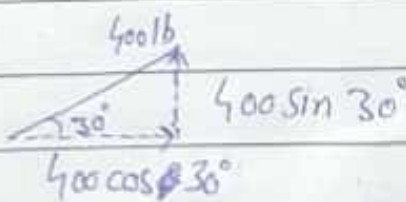 400lb
30°
400 sin 30°
400 cos 30°